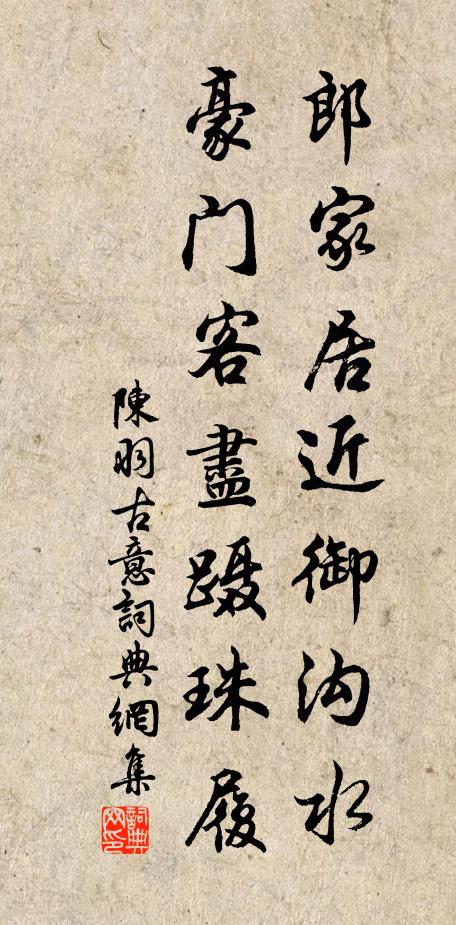 郎家居近御沟水
豪门客盡蹑珠履
陳羽古意詞典網集
詞典网印